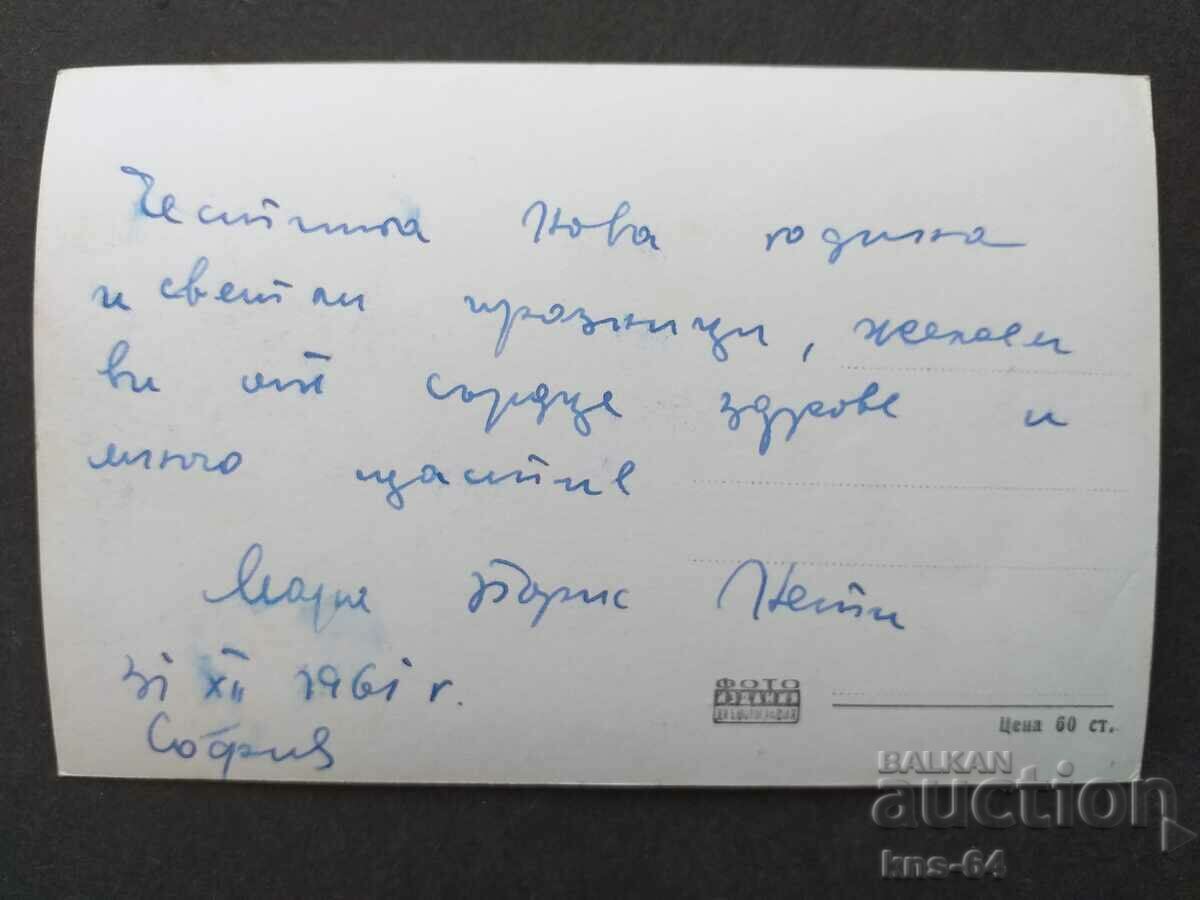 Честита Нова година
и светли празници, желаем
ви от сърдце здраве и
много щастие
Мара Борис Нети
31 XII 1961 г.
София
ФОТО
ИЗДАНИЯ
Цена 60 ст.
BALKAN
auction
kns-64